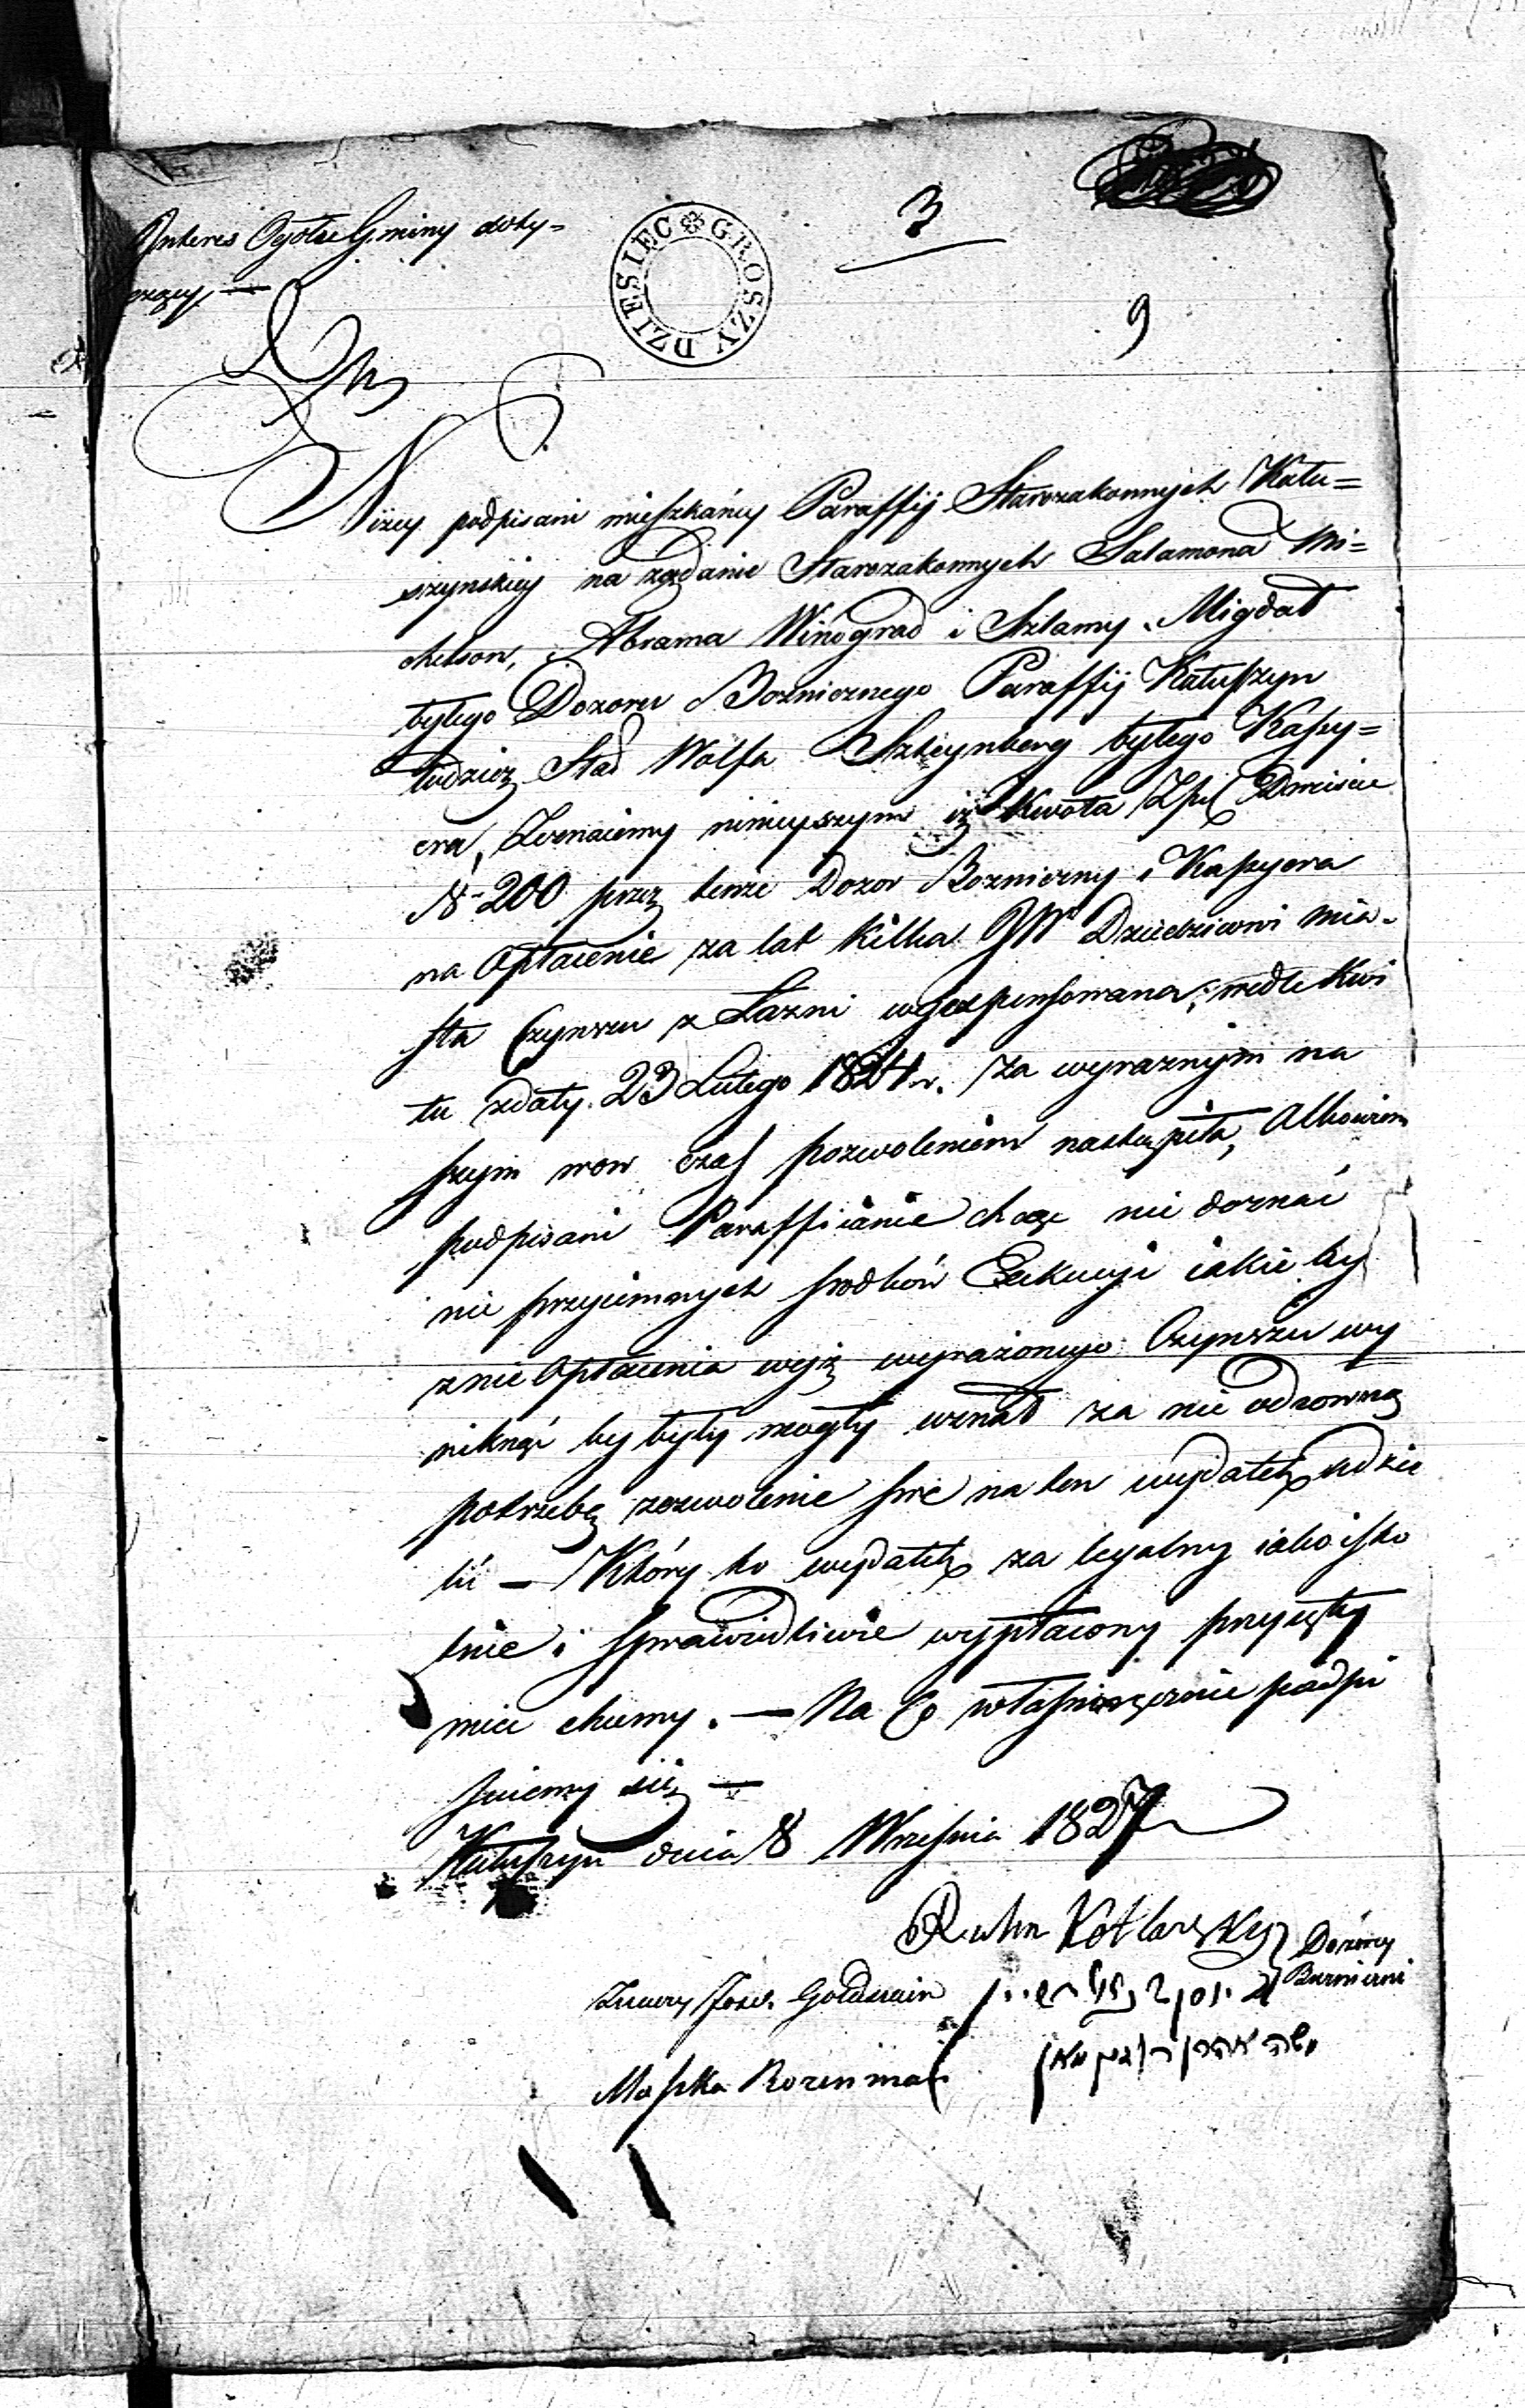 Interes Ogółu Gminy doty=
czący —
DZIESIEC GROSZY
3
9
Niżey podpisani mieszkańcy Paraffij Starozakonnych Kału=
szynskiey na rządanie Starozakonnych Salamona Mi=
chelson, Abrama Winograd i Szlamy Migdał
byłego Dozoru Bozniczego Paraffij Kałuszyn
tudzież Stad Wolfa Szteynberg byłego Kassy=
era, Zeznaiemy ninieyszym iż kwota Zpl Dwieście
N 200 przez tenże Dozor Bozniczny i Kassyera
na Opłacenie za lat kilka JW Dziedzicowi mia=
sta Czynszu z Łazni wyexpensowana, wedle Kwi
tu zdaty 23 Lutego 1824 r. za wyraznym na
szym wow czas pozwoleniem nastąpiła, Albowiem
podpisani Paraffianie chcąc nie doznać
nie przyiemnych srodków Exekucyi iakie by
z nie Opłacenia wyż wyrażonego Czynszu wy
niknąć by były mogły uznał za nie odzowną
potrzebę zezwolenie swe na ten wydatek udzie
lić — Który to wydatek za legalny iako isto
tnie i sprawiedliwie wypłacony przyięty
mieć chcemy. — Na Co własnoręcznie podpi
suiemy się —
Kałuszyn dnia 8 Wrzesnia 1827
Kotlarsky Dozorcy
Josek Goldwain
Moszka Rozenman
משה אהרן ראזינמאן